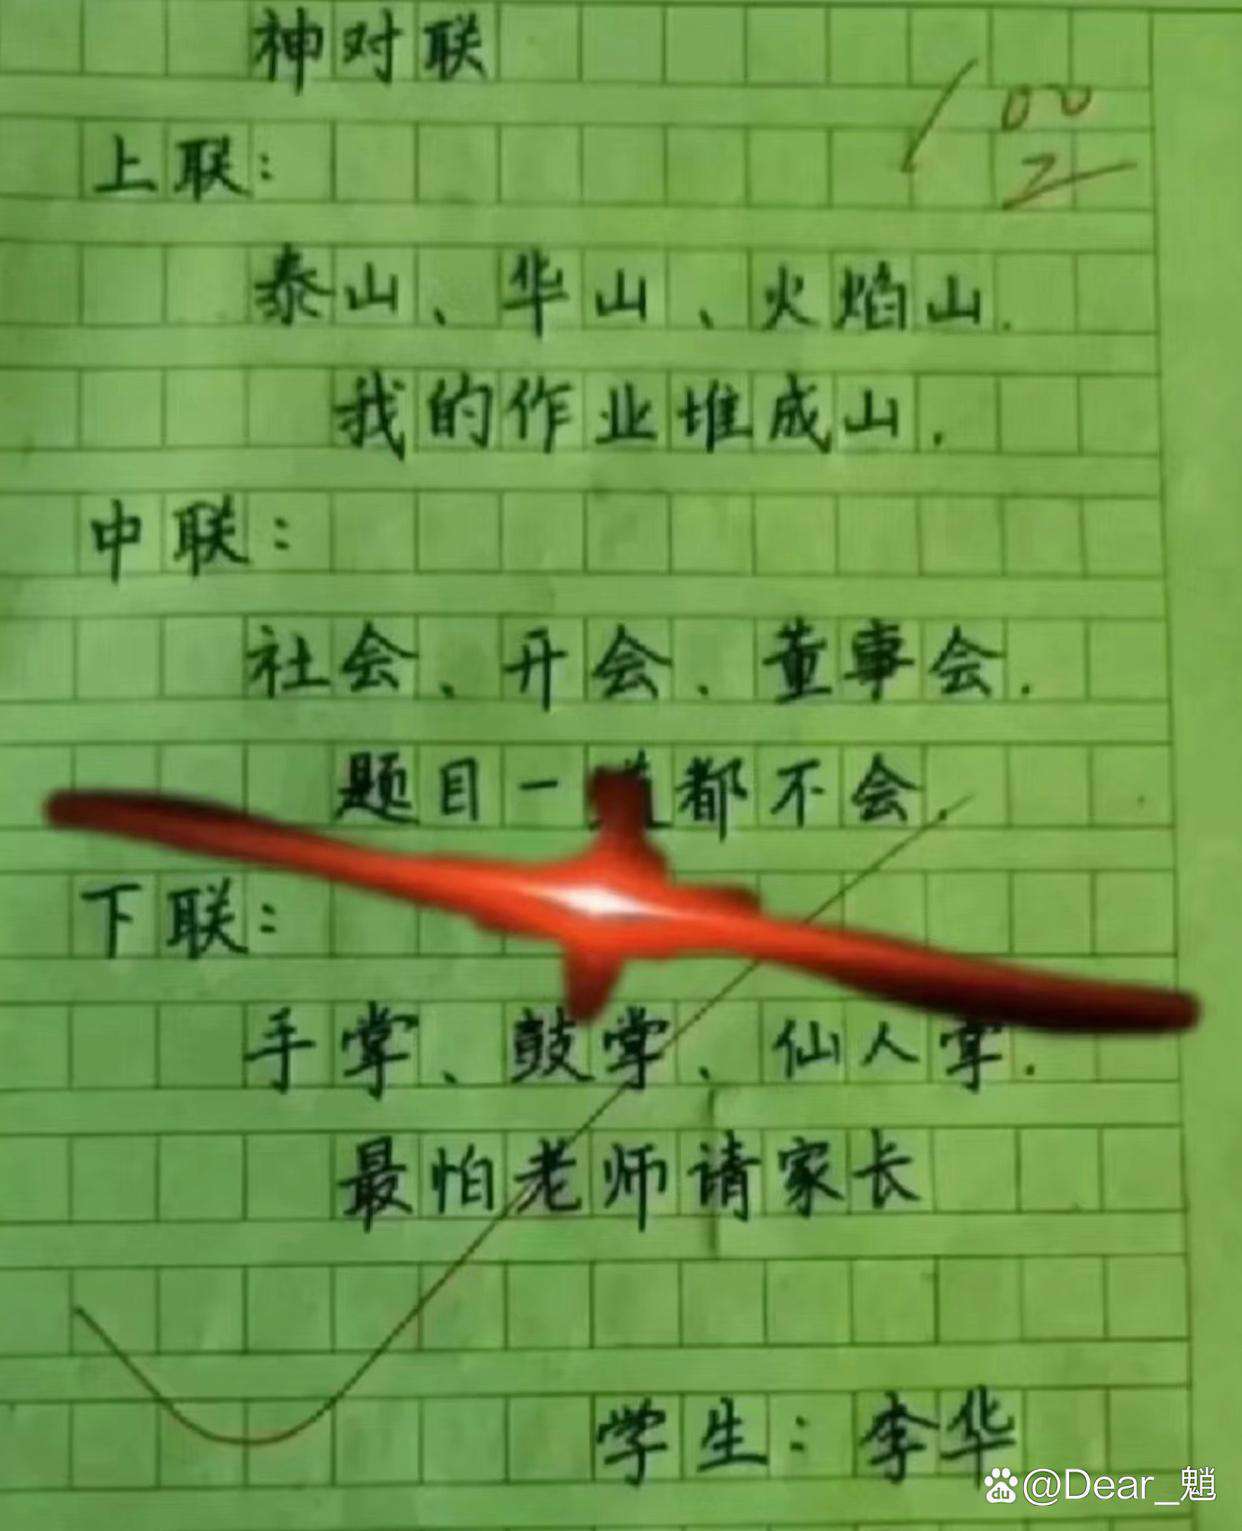 神对联
100
上联：
泰山、华山、火焰山.
我的作业堆成山.
中联：
社会、开会、董事会.
题目一道都不会.
下联：
手掌、鼓掌、仙人掌.
最怕老师请家长
学生：李华
du @Dear_魈